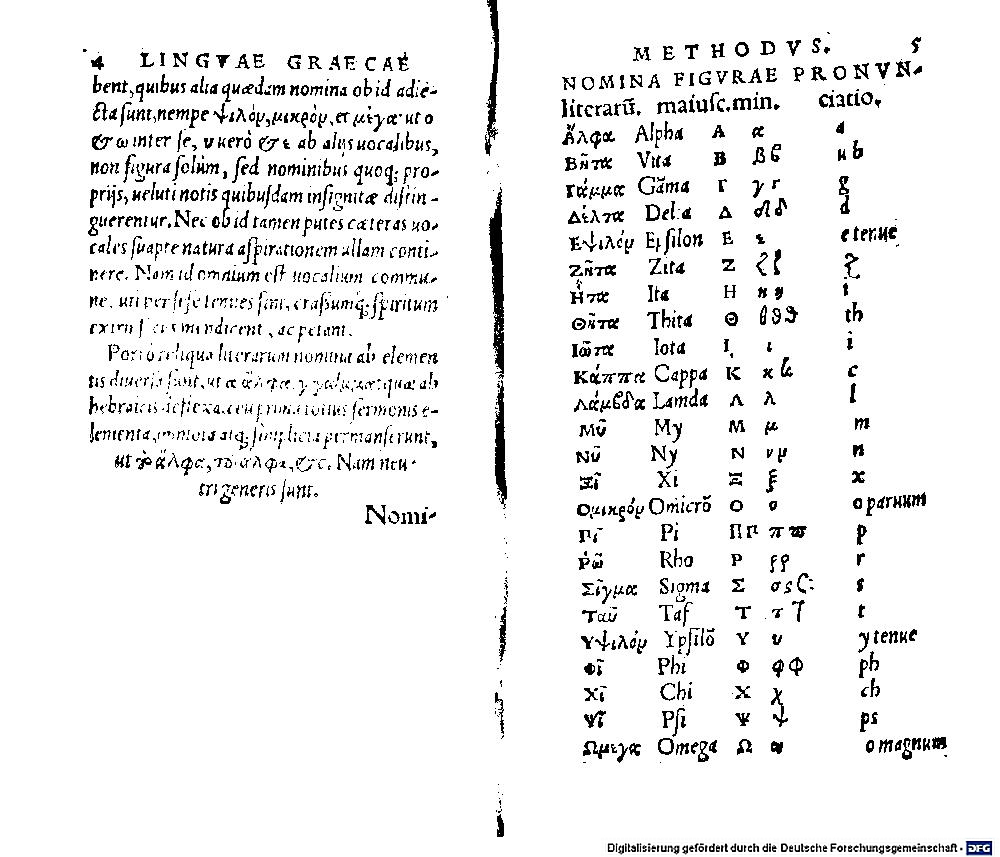 4 LINGVAE GRAECAE
bent, quibus alia quædam nomina ob id adie-
cta sunt, nempe ψιλόν, μικρόν, et μέγα: ut ο
& ω inter se, υ uerò & ε ab alijs uocalibus,
non figura solùm, sed nominibus quoq; pro-
prijs, ueluti notis quibusdam insignitæ distin-
guerentur. Nec ob id tamen putes cæteras uo-
cales suapte natura aspirationem ullam conti-
nere. Nam id omnium est uocalium commu-
ne, uti per se tenues sint, crassumq; spiritum
extrinsecus mendicent, ac petant.
Porrò reliqua literarum nomina ab elemen
tis diuersa sunt, ut α ἄλφα, γ γάμμα: quæ ab
hebraicis deflexa, ceu prima totius sermonis e-
lementa, immota atq; simplicia permanserunt,
ut τὸ ἄλφα, τοῦ ἄλφα, &c. Nam neu-
tri generis sunt.
Nomi-
METHODVS. 5
NOMINA FIGVRAE PRONVN-
literarũ. maiusc. min. ciatio.
Ἄλφα Alpha Α α a
Βῆτα Vita Β β ϐ u b
Γάμμα Gãma Γ γ г g
Δέλτα Delta Δ δ d
Εψιλόν Epsilon Ε ε e tenue
Ζῆτα Zita Ζ ζ z
Ητα Ita Η η i
Θῆτα Thita Θ θ ϑ th
Ιῶτα Iota Ι ι i
Κάππα Cappa Κ κ c
Λάμϐδα Lamda Λ λ l
Μῦ My Μ μ m
Νῦ Ny Ν ν n
Ξῖ Xi Ξ ξ x
Ομικρόν Omicrõ Ο ο o paruum
Πῖ Pi Π π ϖ p
Ῥῶ Rho Ρ ρ r
Σῖγμα Sigma Σ σ ς s
Ταῦ Taf Τ τ t
Υψιλόν Ypsilõ Υ υ y tenue
Φῖ Phi Φ φ ph
Χῖ Chi Χ χ ch
Ψῖ Psi Ψ ψ ps
Ωμεγα Omega Ω ω o magnum
Digitalisierung gefördert durch die Deutsche Forschungsgemeinschaft - DFG